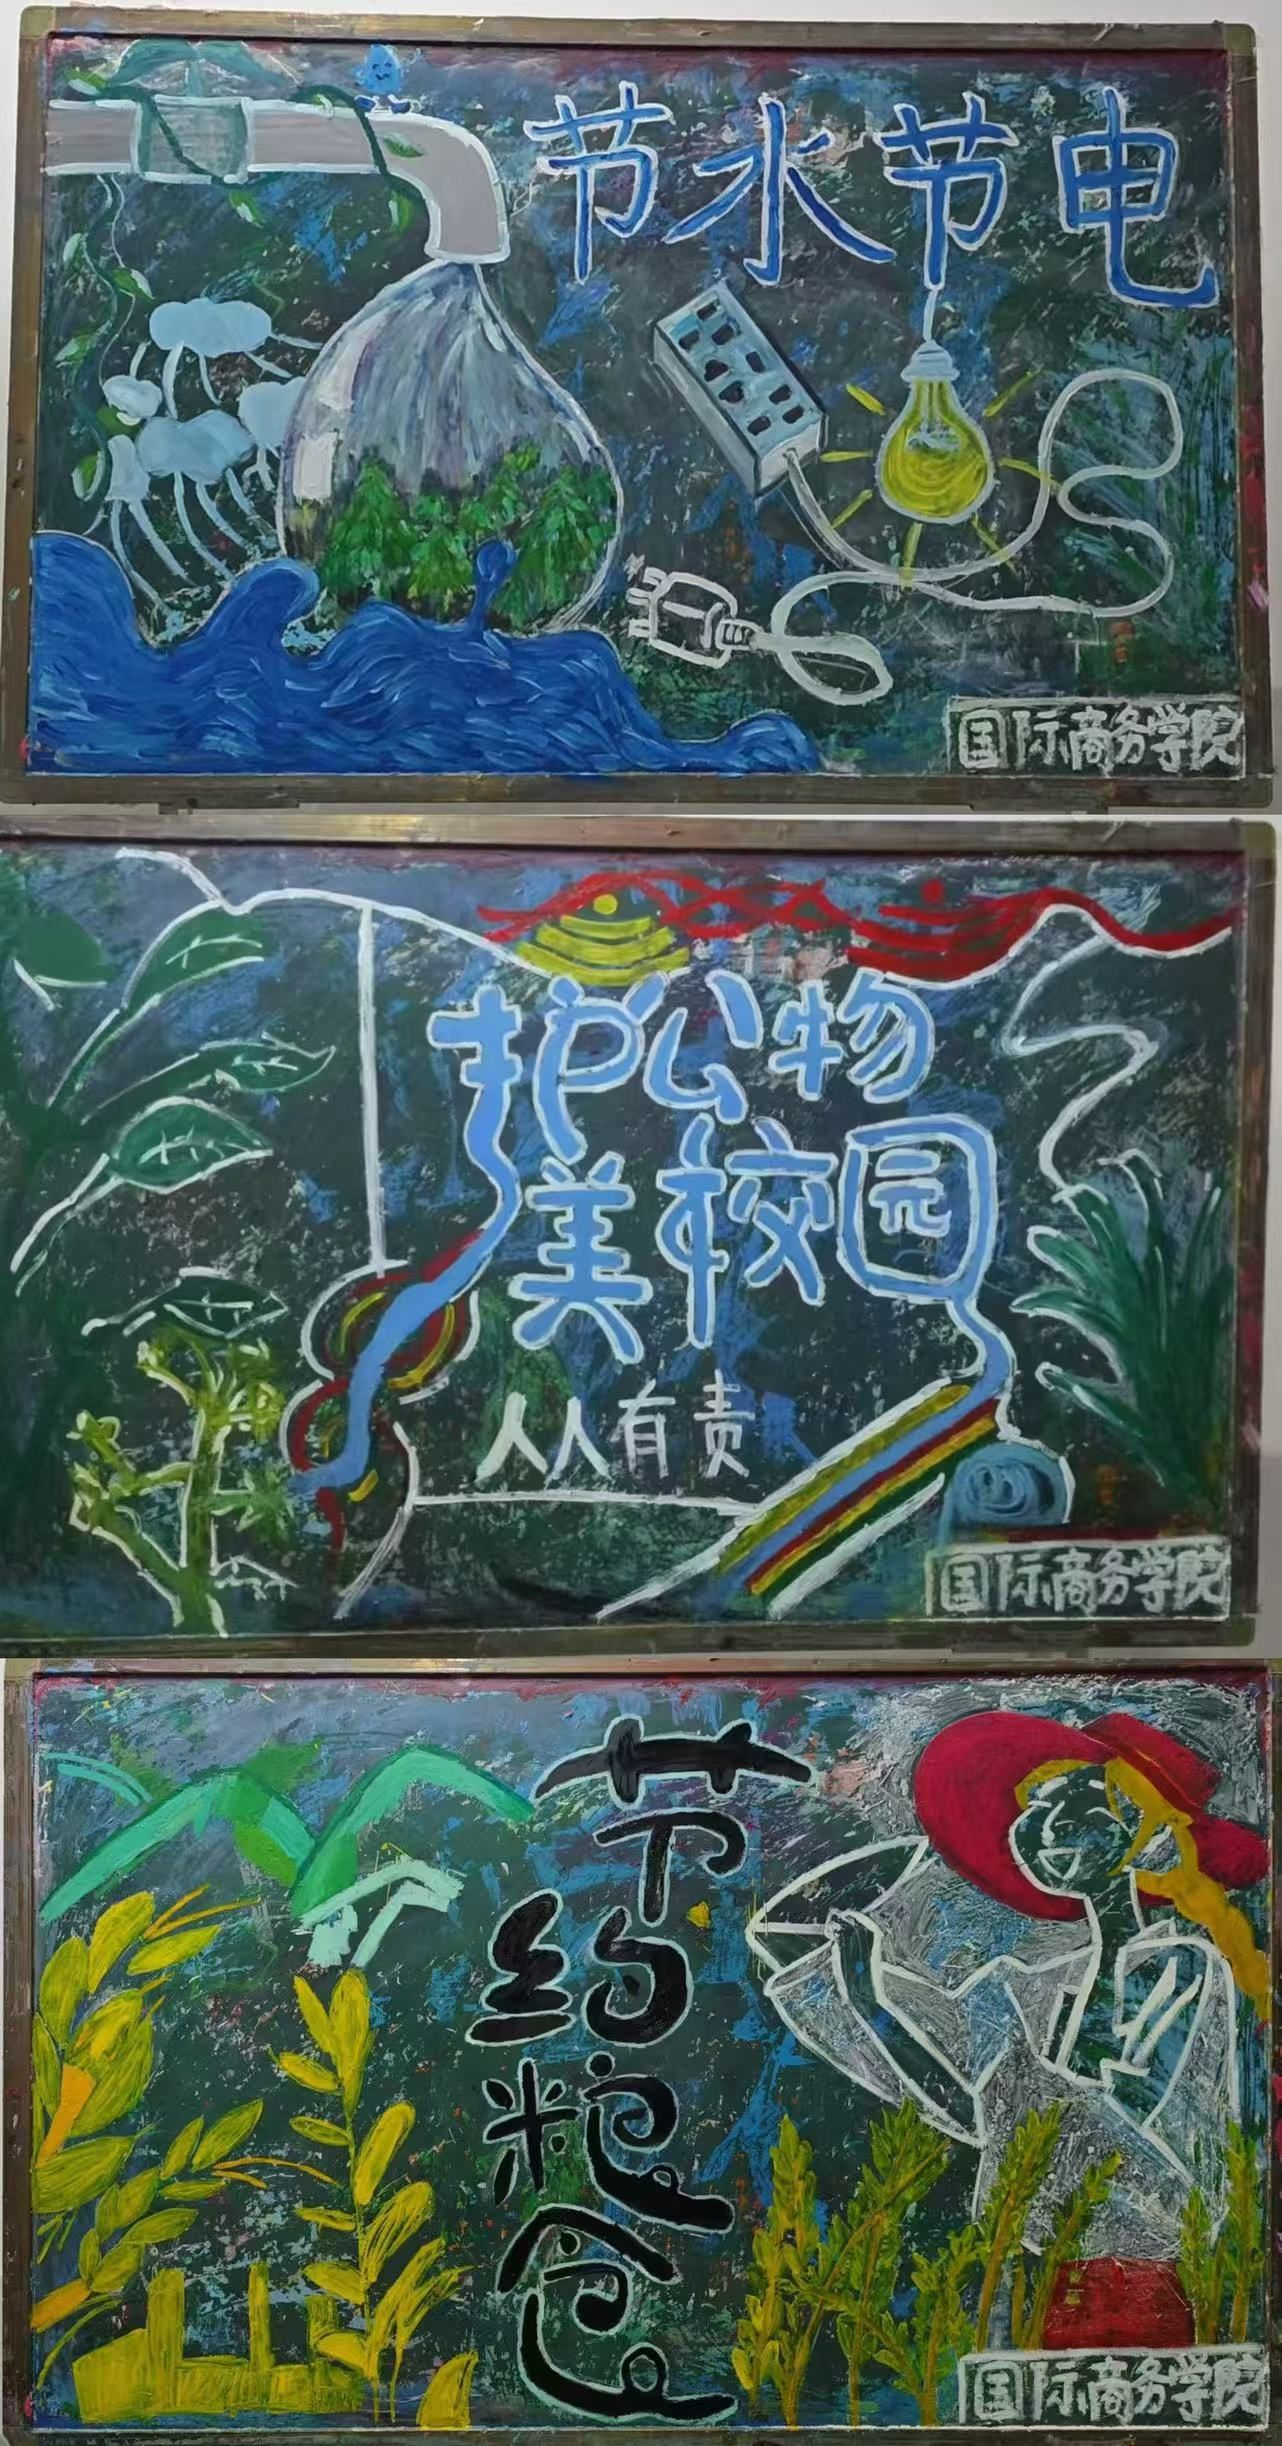 节水节电
国际商务学院
护公物
美校园
人人有责
国际商务学院
节约粮食
国际商务学院